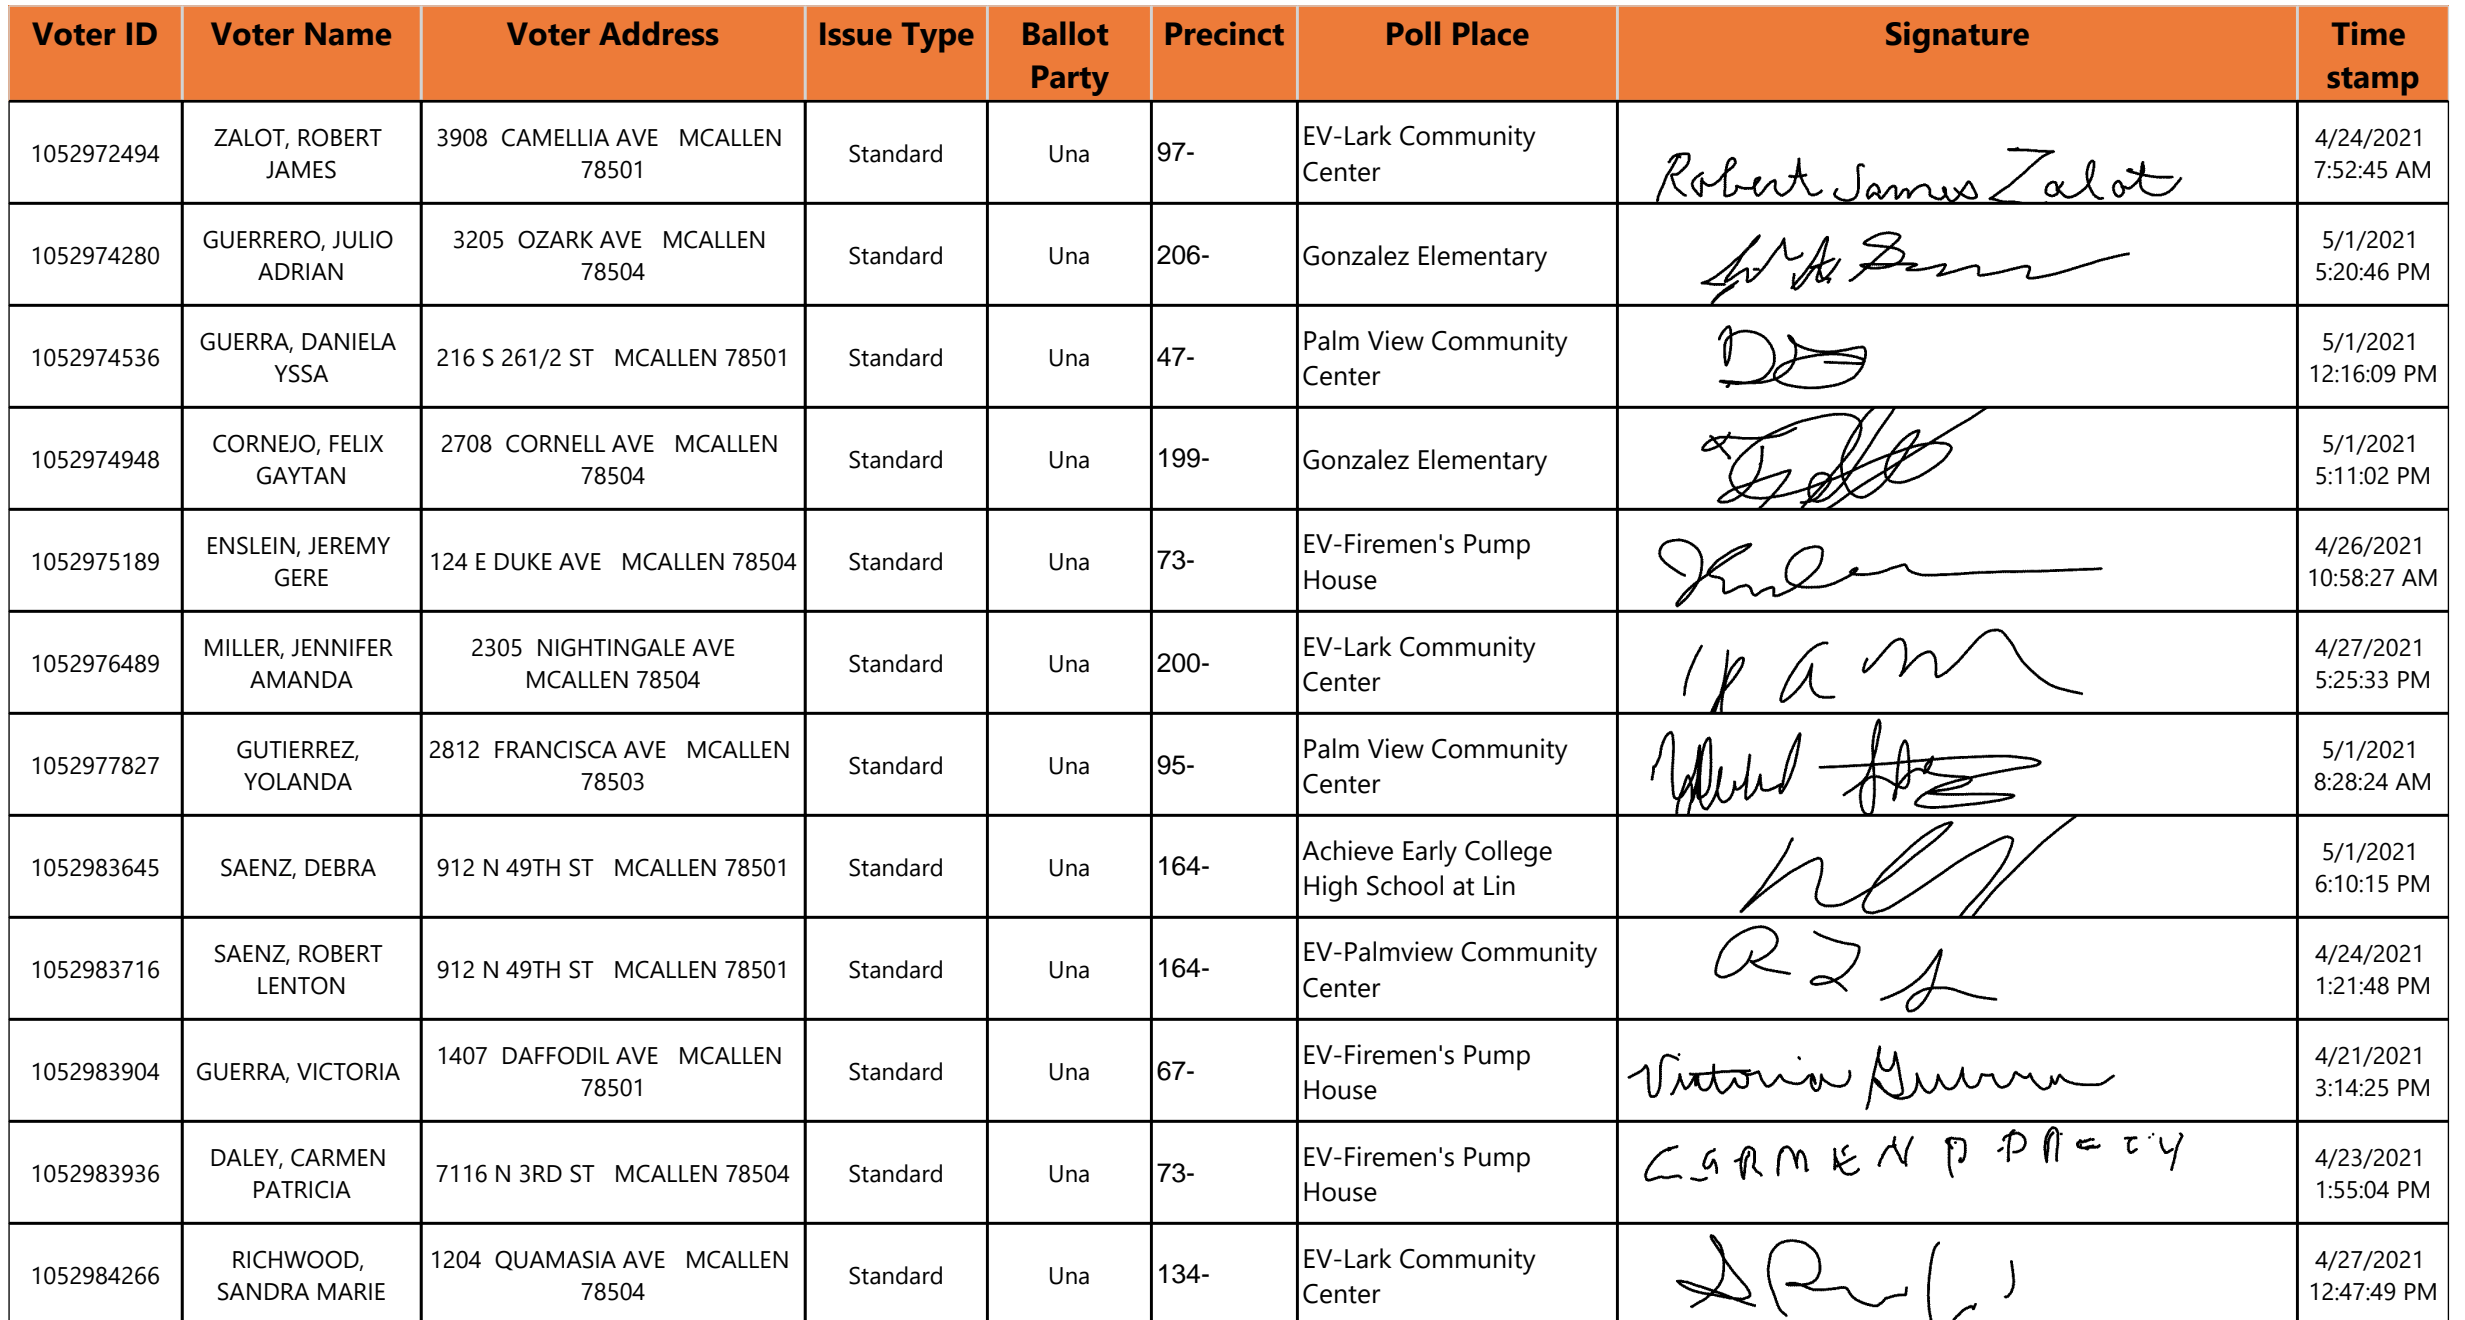 Voter ID Voter Name Voter Address Issue Type Ballot Party Precinct Poll Place Signature Time stamp
1052972494 ZALOT, ROBERT JAMES 3908 CAMELLIA AVE MCALLEN 78501 Standard Una 97- EV-Lark Community Center Robert James Zalot 4/24/2021 7:52:45 AM
1052974280 GUERRERO, JULIO ADRIAN 3205 OZARK AVE MCALLEN 78504 Standard Una 206- Gonzalez Elementary 5/1/2021 5:20:46 PM
1052974536 GUERRA, DANIELA YSSA 216 S 261/2 ST MCALLEN 78501 Standard Una 47- Palm View Community Center 5/1/2021 12:16:09 PM
1052974948 CORNEJO, FELIX GAYTAN 2708 CORNELL AVE MCALLEN 78504 Standard Una 199- Gonzalez Elementary 5/1/2021 5:11:02 PM
1052975189 ENSLEIN, JEREMY GERE 124 E DUKE AVE MCALLEN 78504 Standard Una 73- EV-Firemen's Pump House 4/26/2021 10:58:27 AM
1052976489 MILLER, JENNIFER AMANDA 2305 NIGHTINGALE AVE MCALLEN 78504 Standard Una 200- EV-Lark Community Center 4/27/2021 5:25:33 PM
1052977827 GUTIERREZ, YOLANDA 2812 FRANCISCA AVE MCALLEN 78503 Standard Una 95- Palm View Community Center 5/1/2021 8:28:24 AM
1052983645 SAENZ, DEBRA 912 N 49TH ST MCALLEN 78501 Standard Una 164- Achieve Early College High School at Lin 5/1/2021 6:10:15 PM
1052983716 SAENZ, ROBERT LENTON 912 N 49TH ST MCALLEN 78501 Standard Una 164- EV-Palmview Community Center 4/24/2021 1:21:48 PM
1052983904 GUERRA, VICTORIA 1407 DAFFODIL AVE MCALLEN 78501 Standard Una 67- EV-Firemen's Pump House Victoria Guerra 4/21/2021 3:14:25 PM
1052983936 DALEY, CARMEN PATRICIA 7116 N 3RD ST MCALLEN 78504 Standard Una 73- EV-Firemen's Pump House CARMEN P 4/23/2021 1:55:04 PM
1052984266 RICHWOOD, SANDRA MARIE 1204 QUAMASIA AVE MCALLEN 78504 Standard Una 134- EV-Lark Community Center 4/27/2021 12:47:49 PM